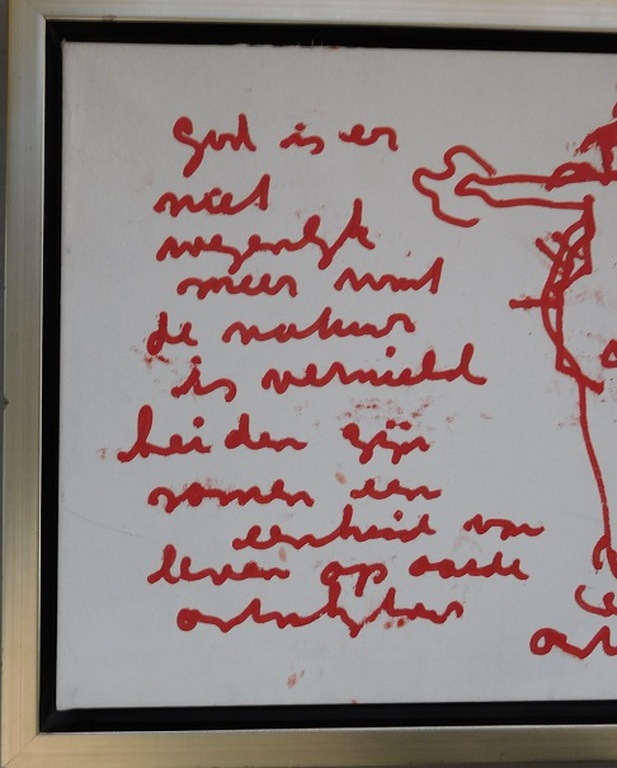 god is er
niet
wezenlijk
meer want
de natuur
is vernield
beiden zijn
samen een
eenheid van
leven op aarde